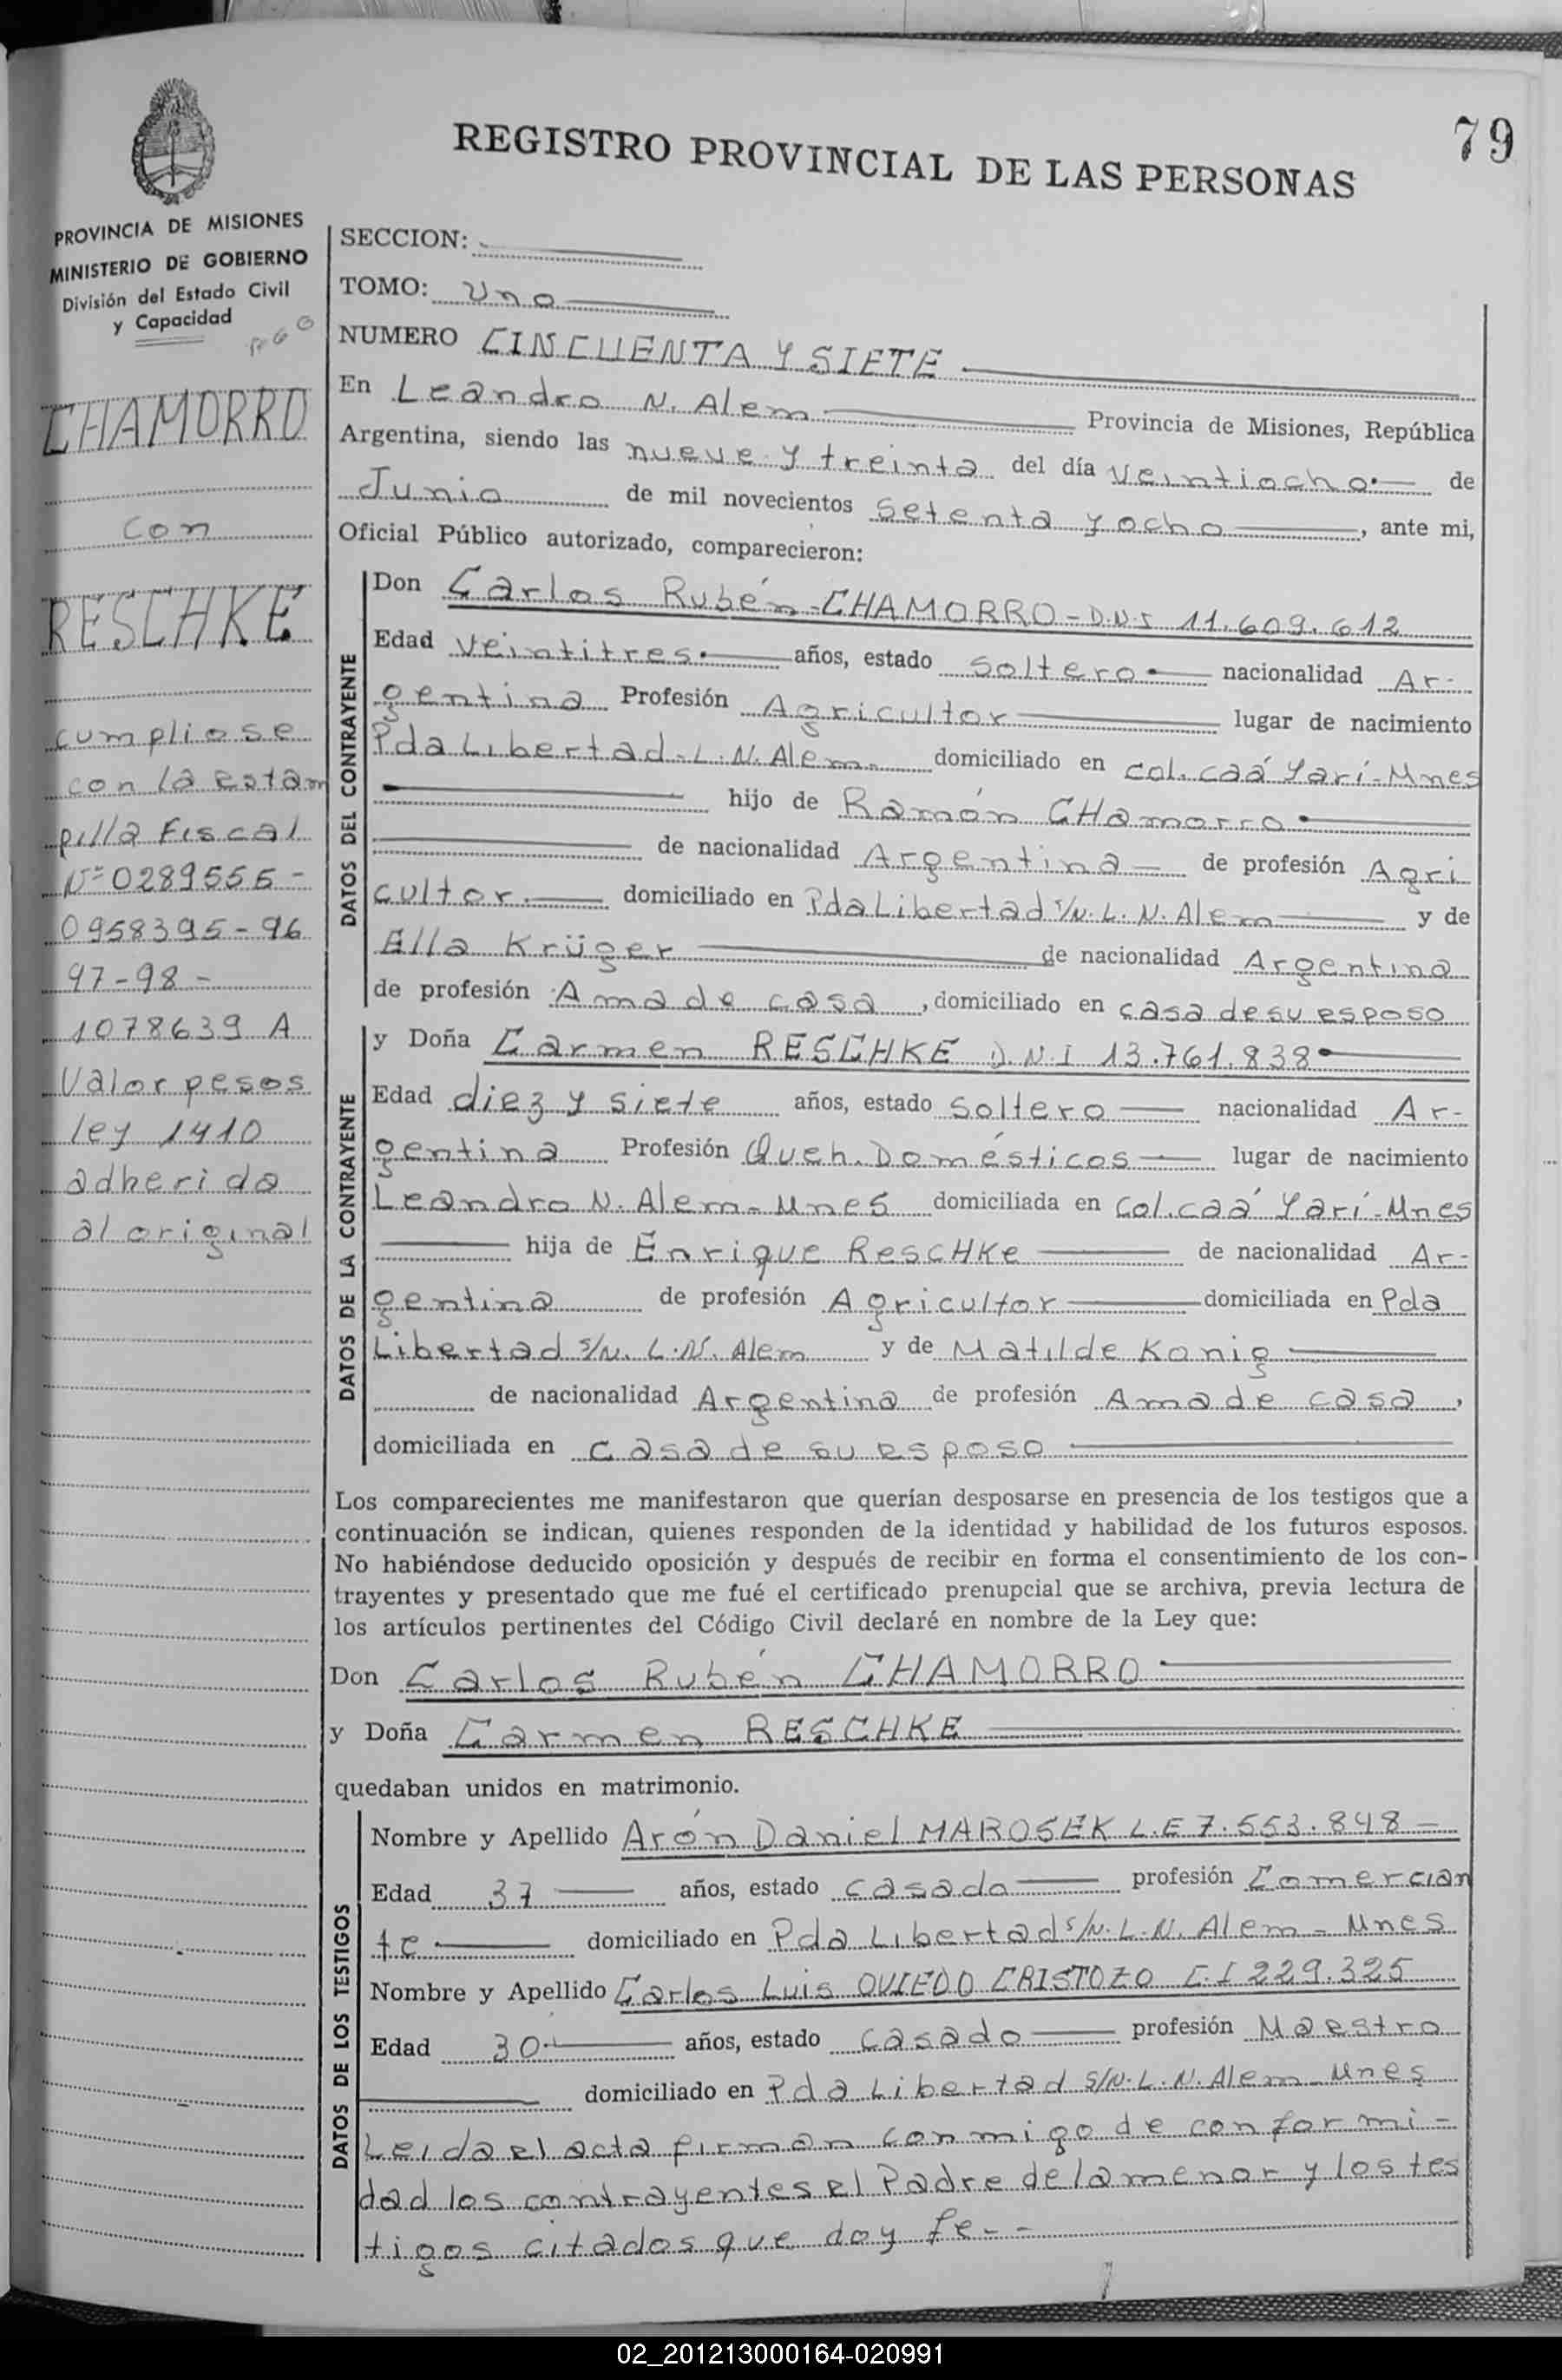 79
REGISTRO PROVINCIAL DE LAS PERSONAS
PROVINCIA DE MISIONES
MINISTERIO DE GOBIERNO
División del Estado Civil
y Capacidad
CHAMORRO
con
RESCHKE
cumpliose
con la estam
pilla Fiscal
Nº 0289555-
0958395-96
97-98-
1078639 A
Valor pesos
ley 1410
adherida
al original
SECCION:
TOMO: Uno
NUMERO CINCUENTA Y SIETE
En Leandro N. Alem Provincia de Misiones, República
Argentina, siendo las nueve y treinta del día veintiocho de
Junio de mil novecientos setenta y ocho, ante mi,
Oficial Público autorizado, comparecieron:
DATOS DEL CONTRAYENTE
Don Carlos Rubén CHAMORRO - D.N.I 11.609.612
Edad veintitres años, estado soltero nacionalidad Ar-
gentina Profesión Agricultor lugar de nacimiento
Pda Libertad-L.N.Alem- domiciliado en col.caá Yarí-Mnes
hijo de Ramón CHamorro
de nacionalidad Argentina de profesión Agri
cultor domiciliado en Pda Libertad s/N. L. N. Alem y de
Ella Krüger de nacionalidad Argentina
de profesión Ama de casa, domiciliado en casa de su esposo
DATOS DE LA CONTRAYENTE
y Doña Carmen RESCHKE D.N.I 13.761.838
Edad diez y siete años, estado soltero nacionalidad Ar-
gentina Profesión Queh. Domésticos lugar de nacimiento
Leandro N. Alem-Mnes domiciliada en col.caá Yarí-Mnes
hija de Enrique ResCHKe de nacionalidad Ar-
gentina de profesión Agricultor domiciliada en Pda
Libertad s/N. L.N. Alem y de Matilde Konig
de nacionalidad Argentina de profesión Ama de casa,
domiciliada en casa de su esposo
Los comparecientes me manifestaron que querían desposarse en presencia de los testigos que a
continuación se indican, quienes responden de la identidad y habilidad de los futuros esposos.
No habiéndose deducido oposición y después de recibir en forma el consentimiento de los con-
trayentes y presentado que me fué el certificado prenupcial que se archiva, previa lectura de
los artículos pertinentes del Código Civil declaré en nombre de la Ley que:
Don Carlos Rubén CHAMORRO
y Doña Carmen RESCHKE
quedaban unidos en matrimonio.
DATOS DE LOS TESTIGOS
Nombre y Apellido Arón Daniel MAROSEK L.E 7.553.848
Edad 37 años, estado casado profesión Comercian
te domiciliado en Pda Libertad s/N. L. N. Alem - Mnes
Nombre y Apellido Carlos Luis OVIEDO CRISTOZO C.I 229.325
Edad 30 años, estado casado profesión Maestro
domiciliado en Pda Libertad s/N. L. N. Alem - Mnes
Leida el acta firman conmigo de confor mi-
dad los contrayentes el Padre de la menor y los tes
tigos citados que doy fe.-
02_201213000164-020991